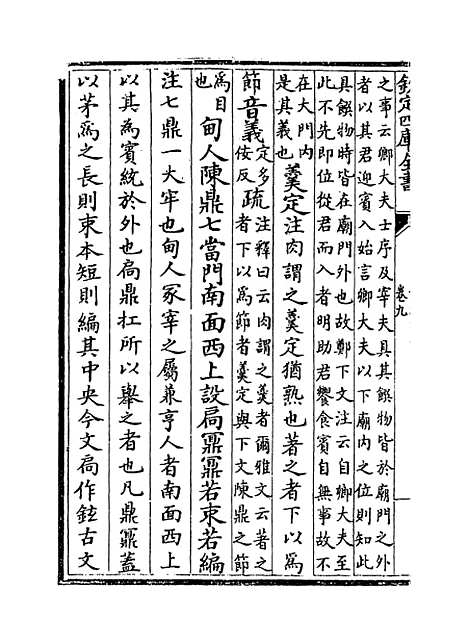 欽定四庫全書
卷九
之事云卿大夫士序及宰夫具其饌物皆於廟門之外
者以其君迎賓入始言卿大夫以下廟内之位則知此
具饌物時皆在廟門外也故鄭下文注云自卿大夫至
此不先即位從君而入者明助君饗食賓自無事故不
在大門内
是其義也
羮定注肉謂之羮定猶熟也著之者下以爲
節音義
定多
佞反
疏
注釋曰云肉謂之羮者爾雅文云著之
者下以爲節者羮定與下文陳鼎之節
爲目
也
甸人陳鼎七當門南面西上設扃鼏鼏若束若編
注七鼎一大牢也甸人冢宰之屬兼亨人者南面西上
以其為賓統於外也扃鼎扛所以舉之者也凡鼎鼏蓋
以茅爲之長則束本短則編其中央今文扃作鉉古文